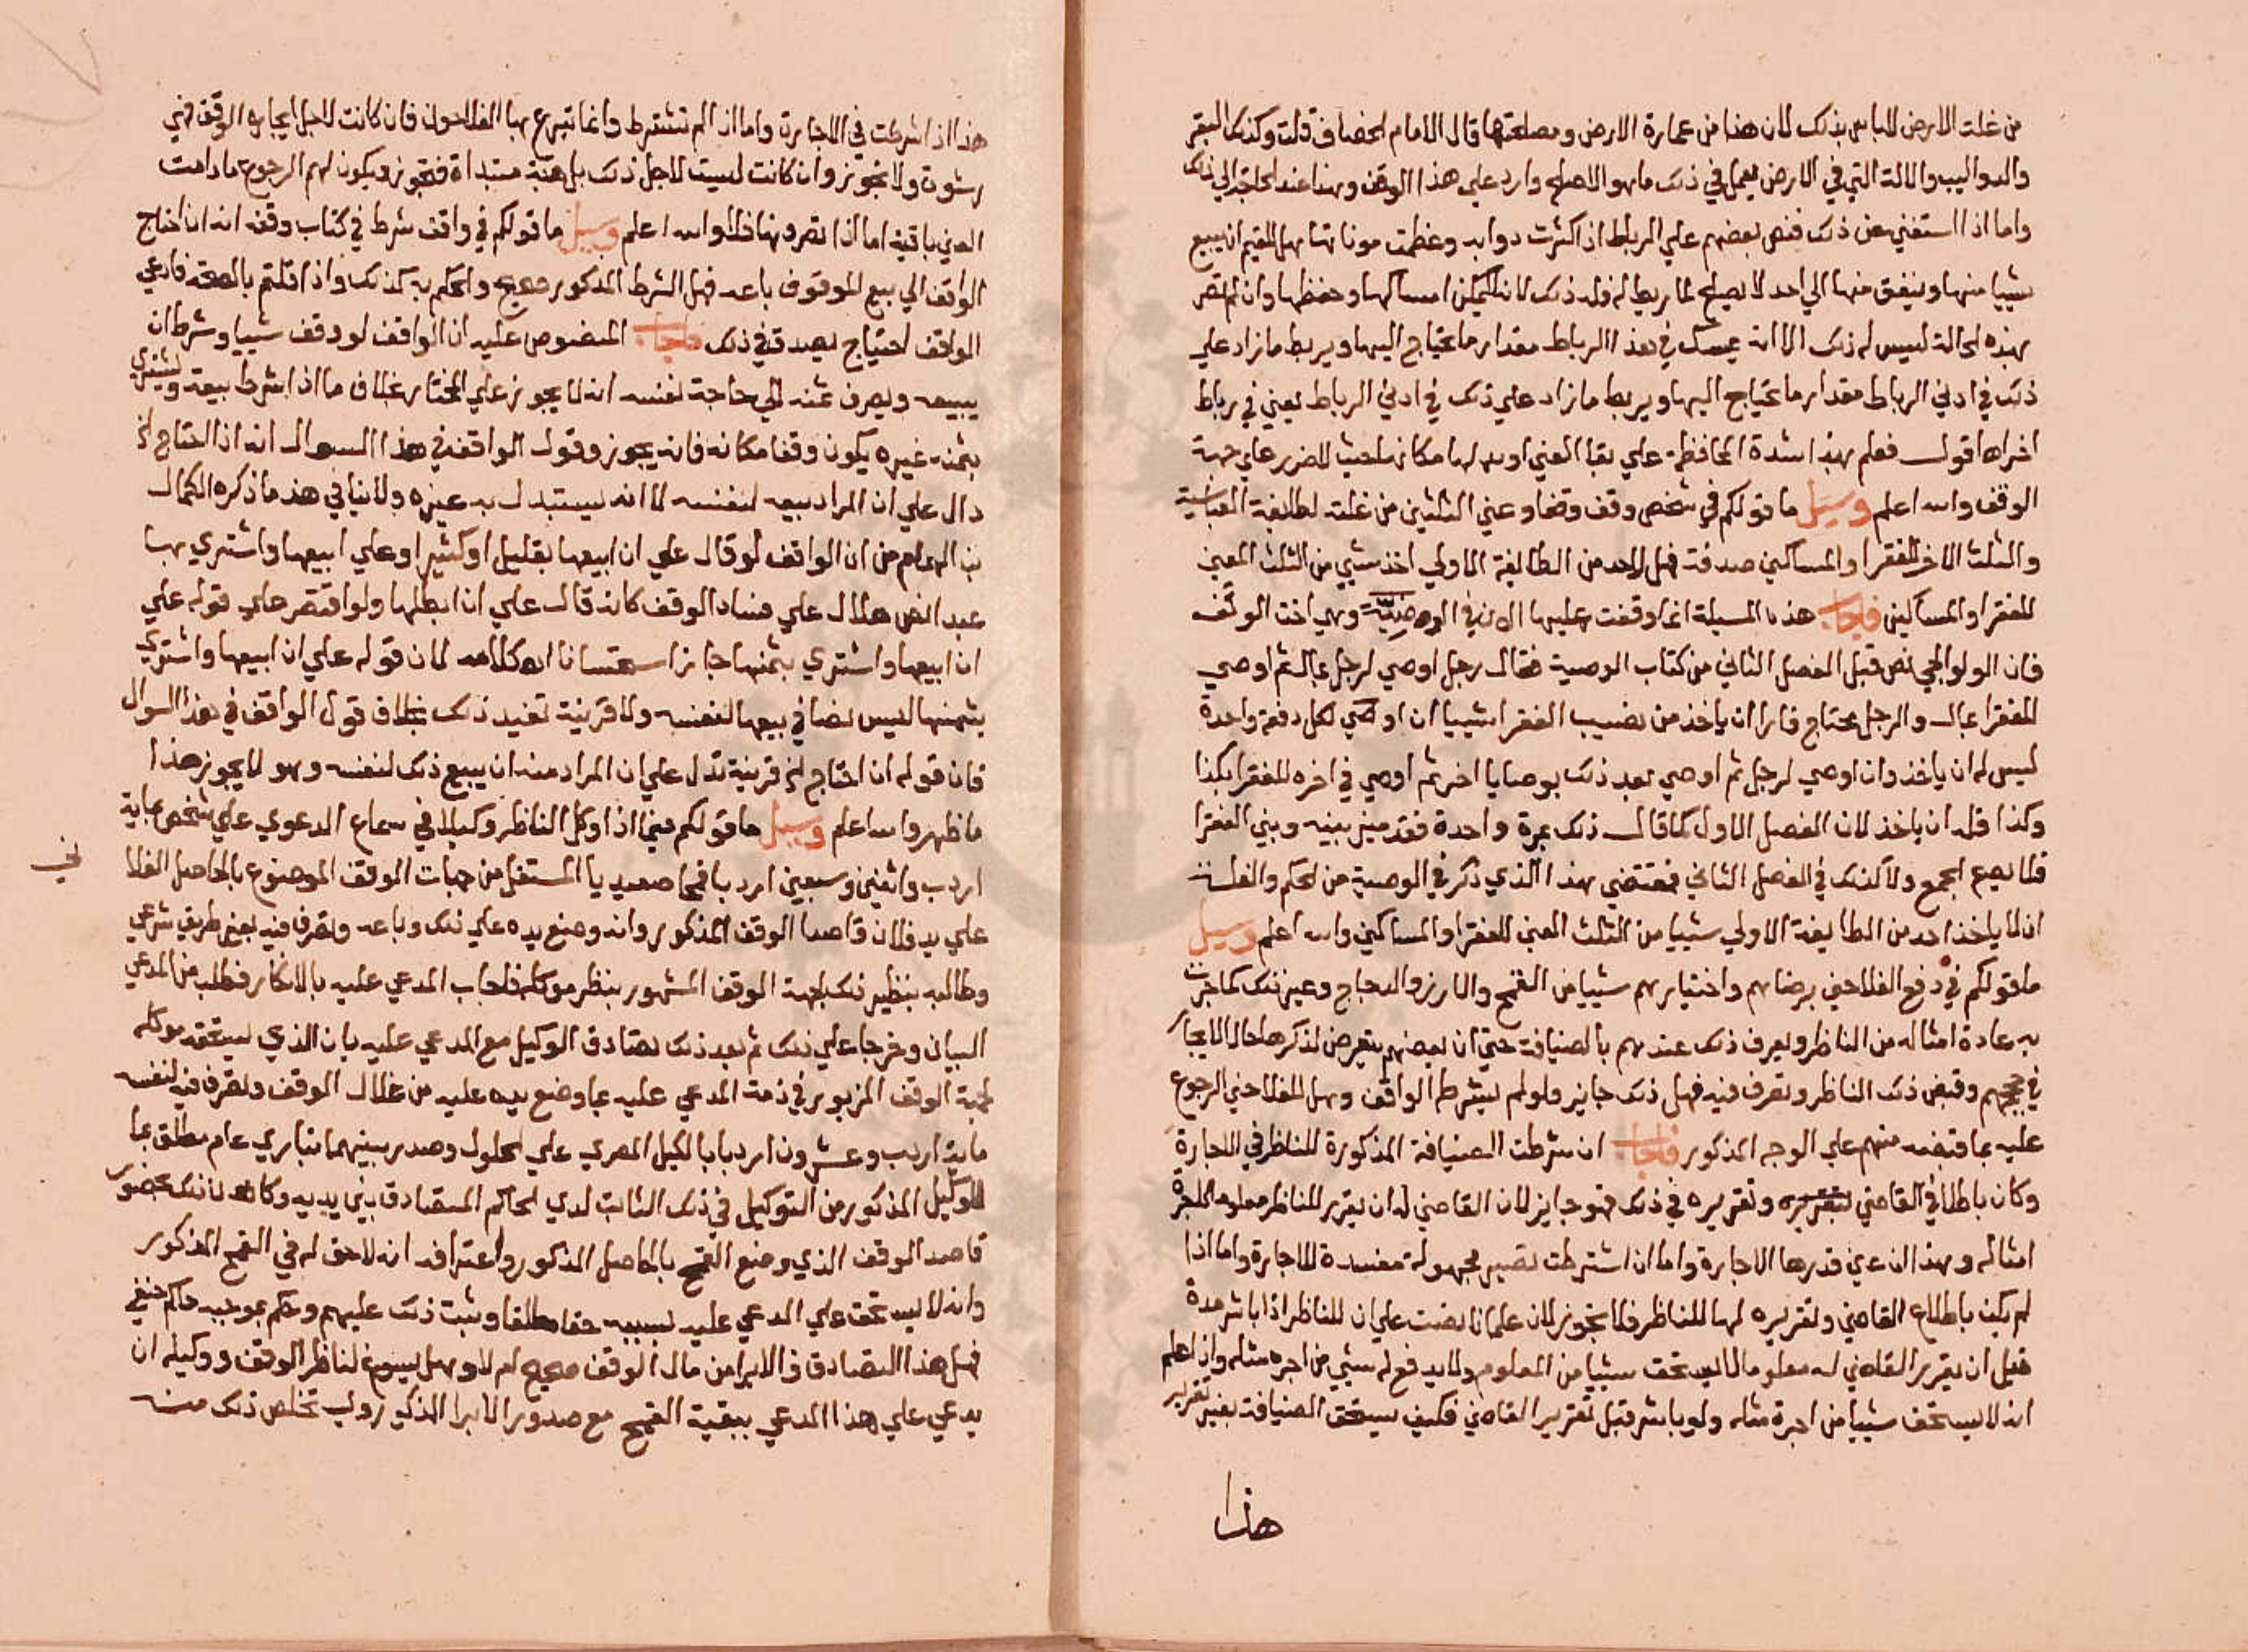 من غلة الارض لا باس بذلك لان هذا من عمارة الارض ومصلحتها قال الامام الخصاف قلت وكذلك البقر
والدواليب والالة التي في الارض يعمل في ذلك ما هو الاصلح وارد علي هذا الوقف وهذا عند الحاجة الي ذلك
واما اذا استغني عن ذلك فنص بعضهم علي الرباط اذا كثرت دوابه وعظمت موناتها هل للقيم ان يبيع
شييا منها وينفق منها الي احد لا يصلح لما ربط له فله ذلك لانه لا يمكن امساكها وحفظها وان لم تصر
بهذه الحالة ليس له ذلك الا انه يمسك في هذا الرباط مقدار ما يحتاج اليها ويربط ما زاد علي
ذلك في ادني الرباط مقدار ما يحتاج اليها ويربط ما زاد علي ذلك في ادني الرباط يعني في رباط
اخر اها قول فعلم بهذا شدة المحافظة علي بقا العين او بدلها مكانها حيث لا ضرر علي جهة
الوقف والله اعلم وسيل ما قولكم في شخص وقف وقفا وعين الثلثين من غلته لطايفة العباسية
والثلث الاخر للفقرا والمساكين صدقة فهل لاحد من الطايفة الاولي اخذ شيي من الثلث المعين
للفقرا والمساكين فاجاب هذه المسيلة انما وقفت عليها الان في الوصية وهي اخت الوقف
فان الولوالجي نص قبل الفصل الثاني من كتاب الوصية فقال رجل اوصي لرجل بمال ثم اوصي
للفقرا بمال والرجل محتاج فاراد ان ياخذ من نصيب الفقرا شييا ان اوصي لكل دفعة واحدة
ليس له ان ياخذ وان اوصي لرجل ثم اوصي بعد ذلك بوصايا اخر ثم اوصي في اخره للفقرا بكذا
وكذا فله ان ياخذ لان الفصل الاول كما قال ذلك بمرة واحدة فقد ميز بينه وبين الفقرا
فلا يصح الجمع ولا كذلك في الفصل الثاني فمقتضي هذا الذي ذكر في الوصية من الحكم والعلة
ان لا ياخذ احد من الطايفة الاولي شييا من الثلث المعين للفقرا والمساكين والله اعلم وسيل
ما قولكم في دفع الفلاحين برضاهم واختيارهم شييا من القمح والارز والدجاج وغير ذلك كما جرت
به عادة امثاله من الناظر ويعرف ذلك عندهم بالضيافة حتي ان بعضهم يتعرض لذكرها حال الايجار
في حججهم وقبض ذلك الناظر وتصرف فيه فهل ذلك جايز ولو لم يشرط الواقف وهل للفلاحين الرجوع
عليه بما قبضه منهم علي الوجه المذكور فاجاب ان شرطت الضيافة المذكورة للناظر في الاجارة
وكان باطلاع القاضي وتقريره في ذلك فهو جايز لان القاضي له ان يقرر للناظر معلوما كاجرة
امثاله وبهذا ان عين قدرها الاجارة واما ان اشترطت تصير مجهولة مفسدة للاجارة واما اذا
لم يكن باطلاع القاضي وتقريره لها للناظر فلا يجوز لان علمانا نصت علي ان للناظر اذا باشر مدة
قبل ان يقرر القاضي له معلوما لا يستحق شييا من المعلوم ولا يدفع له شيي من اجرة مثله واذا علم
انه لا يستحق شييا من اجرة مثله ولو باشر قبل تقرير القاضي فكيف يستحق الضيافة بغير تقرير
هذا
هذا اذا شرطت في الاجارة واما اذا لم تشترط وانما تبرع بها الفلاحون فان كانت لاجل ايجاره الوقف فهي
رشوة ولا يجوز وان كانت ليست لاجل ذلك بل هبة مبتداة فتجوز ويكون لهم الرجوع ما دامت
العين باقية اما اذا تصرف بها فلا والله اعلم وسيل ما قولكم في واقف شرط في كتاب وقفه انه ان احتاج
الواقف الي بيع الموقوف باعه فهل الشرط المذكور صحيح والحكم به كذلك واذا قلتم بالصحة فادعي
الواقف احتياج يصدق في ذلك فاجاب المنصوص عليه ان الواقف لو وقف شييا وشرط ان
يبيعه ويصرف ثمنه الي حاجة نفسه انه لا يجوز علي المختار بخلاف ما اذا شرط بيعه ويشتري
بثمنه غيره يكون وقفا مكانه فانه يجوز وقول الواقف في هذا السوال انه اذا احتاج الخ
دال علي ان المراد بيعه لنفسه لا انه يستبدل به غيره ولا ينافي هذا ما ذكره الكمال
بن الهمام من ان الواقف لو قال علي ان ابيعها بقليل او كثير او علي ابيعها واشتري بها
عبدا نص هلال علي فساد الوقف كانه قال علي ان ابطلها ولو اقتصر علي قوله علي
ان ابيعها واشتري بثمنها جاز استحسانا اه كلامه لان قوله علي ان ابيعها واشتري
بثمنها ليس نصا في بيعها لنفسه ولا قرينة تفيد ذلك بخلاف قول الواقف في هذا السوال
فان قوله ان احتاج الخ قرينة تدل علي ان المراد منه ان يبيع ذلك لنفسه وهو لا يجوز هذا
ما ظهر والله اعلم وسيل ما قولكم فيما اذا وكل الناظر وكيلا في سماع الدعوي علي شخص بماية
اردب واثنين وسبعين اردبا قمحا صعيديا المستغل من جهات الوقف الموضوع بالحاصل الفلا
ني
علي يد فلان قاصد الوقف المذكور وانه وضع يده علي ذلك وباعه وتصرف فيه بغير طريق شرعي
وطالبه بنظير ذلك لجهة الوقف المشهور بنظر موكله فاجاب المدعي عليه بالانكار فطلب من المدعي
البيان وخرجا علي ذلك ثم بعد ذلك تصادق الوكيل مع المدعي عليه بان الذي يستحقه موكله
لجهة الوقف المزبور في ذمة المدعي عليه بما وضع يده عليه من غلال الوقف وتصرف فيه لنفسه
ماية اردب وعشرون اردبا بالكيل المصري علي الحلول وصدر بينهما تباري عام مطلق بما
للوكيل المذكور من التوكيل في ذلك الثابت لدي الحاكم المتصادق بين يديه وكان ذلك بحضور
قاصد الوقف الذي وضع القمح بالحاصل المذكور واعترافه انه لا حق له في القمح المذكور
وانه لا يستحق علي المدعي عليه بسببه حقا مطلقا وثبت ذلك عليهم وحكم بموجبه حاكم حنفي
فهل هذا التصادق والابرا من مال الوقف صحيح ام لا وهل يسوغ لناظر الوقف ووكيله ان
يدعي علي هذا المدعي ببقية القمح مع صدور الابرا المذكور وليستخلص ذلك منه